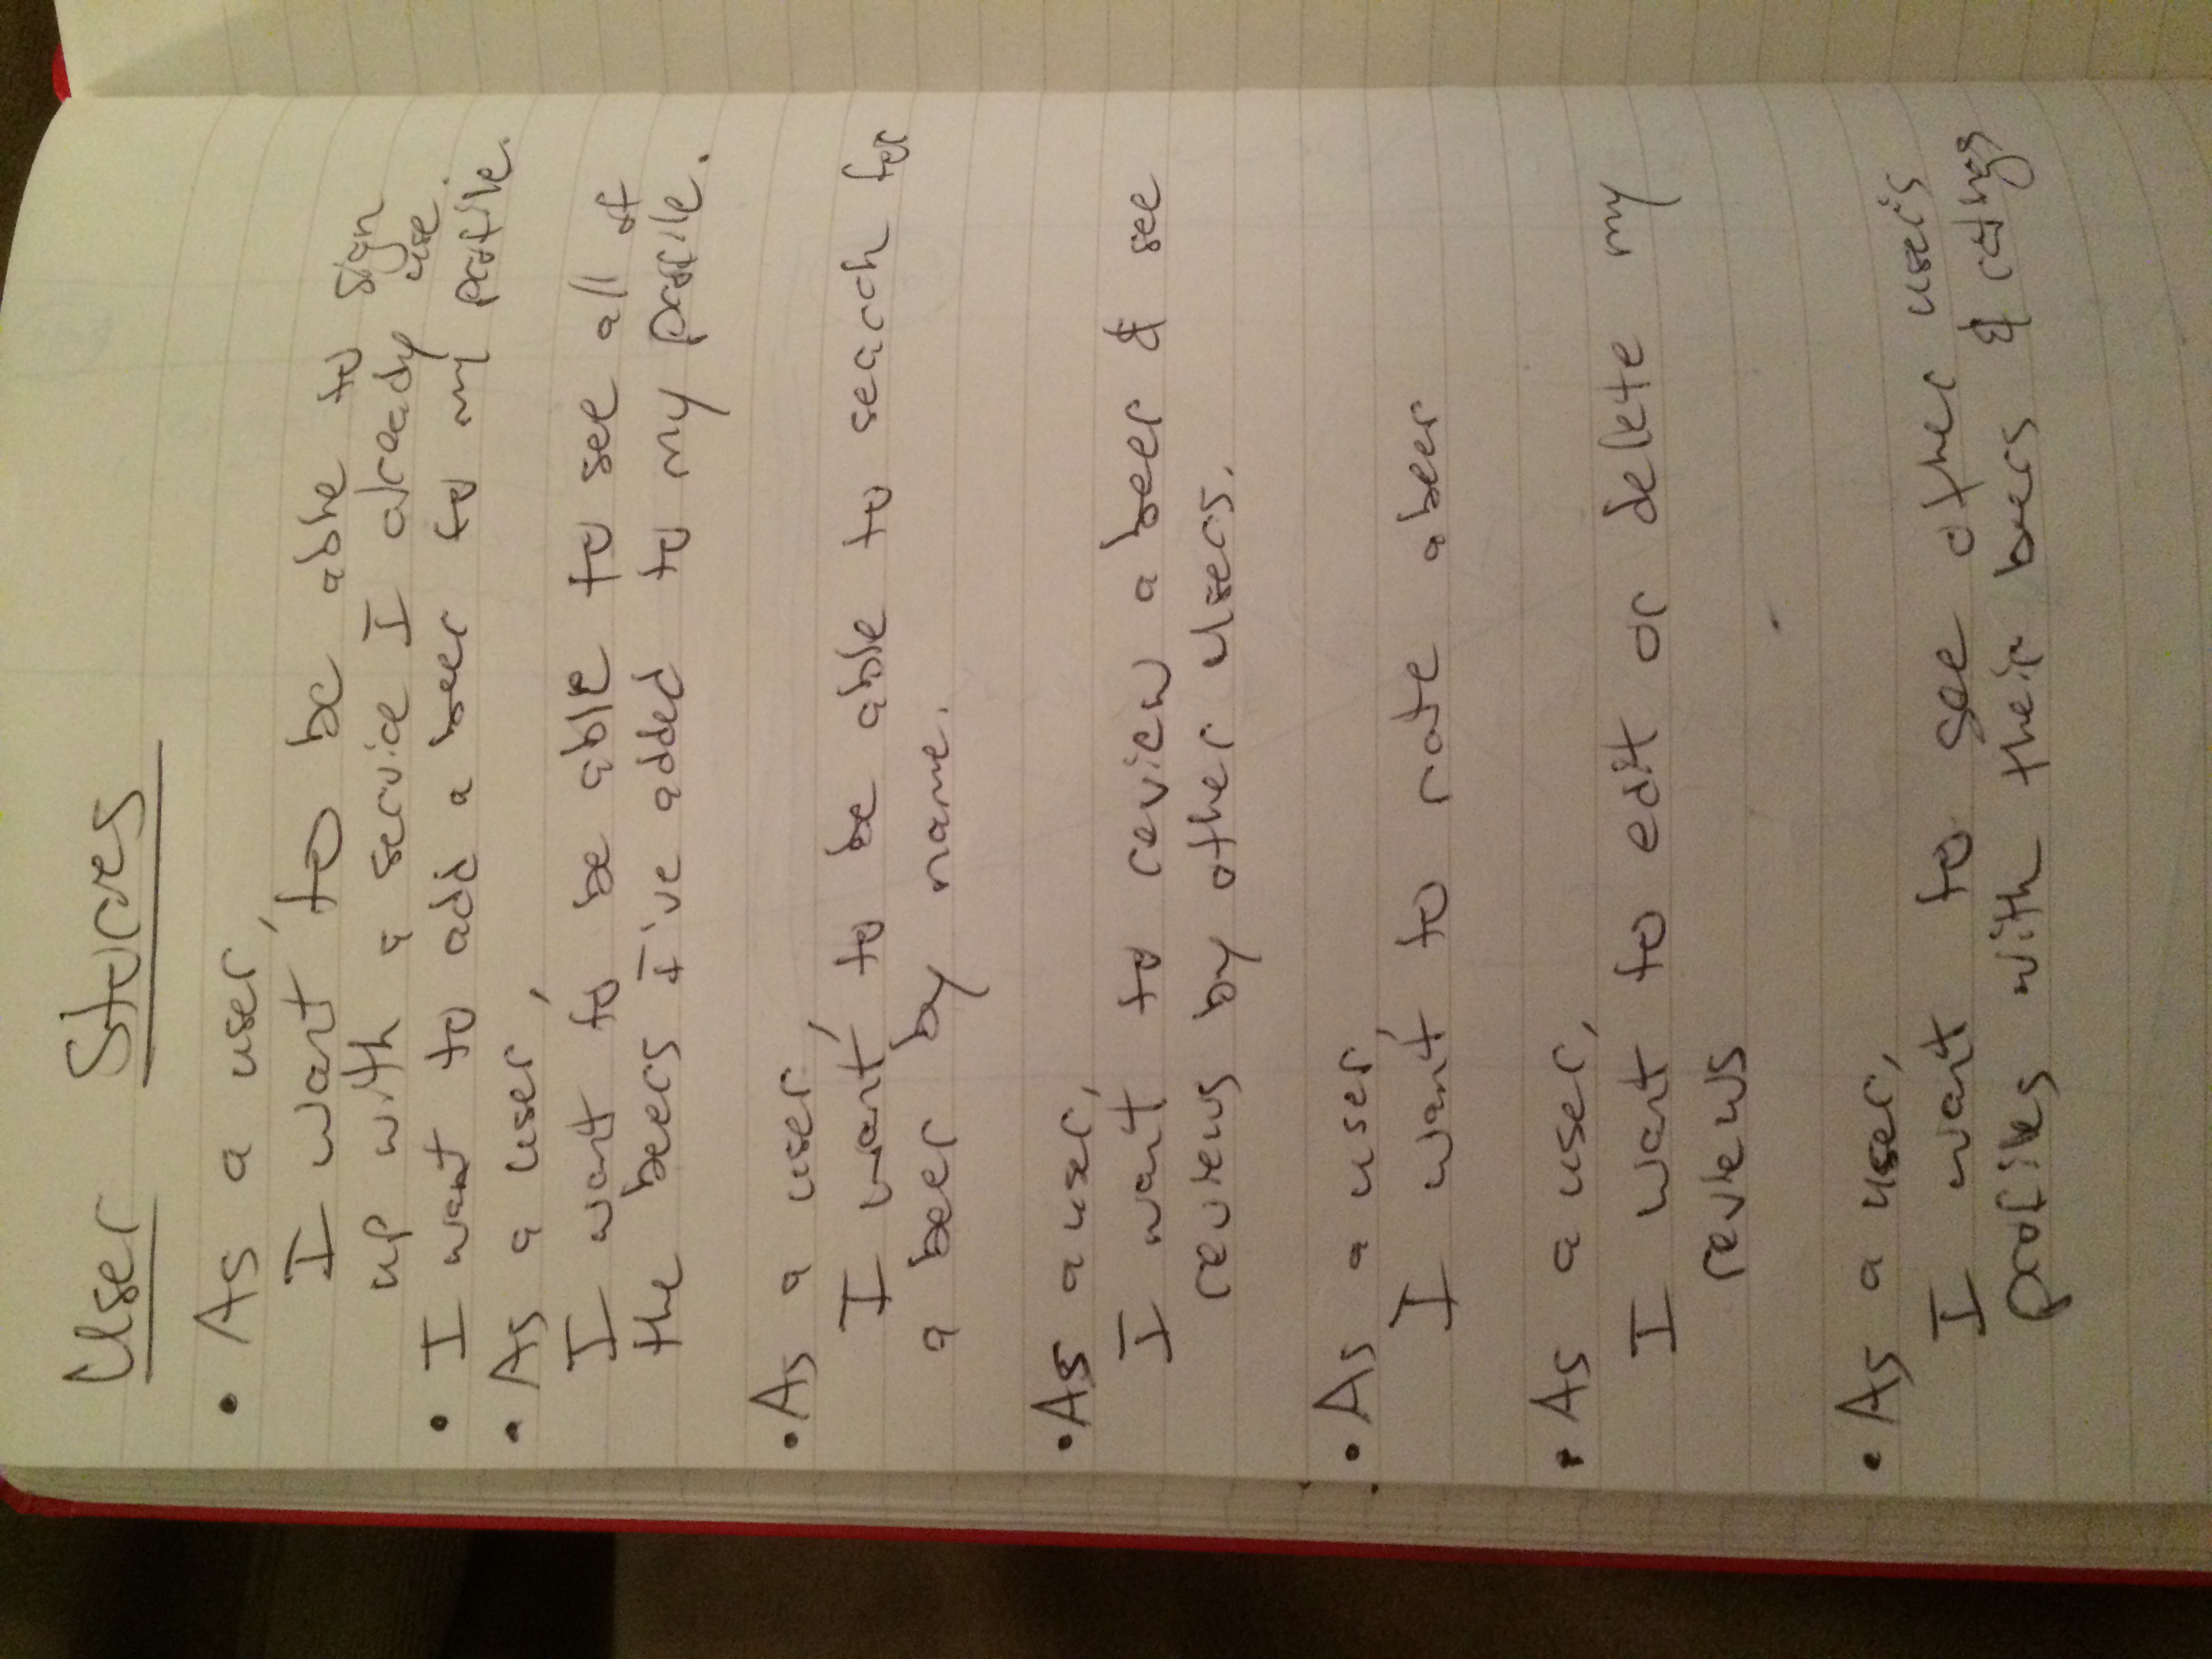 User Stories
• As a user,
I want to be able to sign
up with a service I already use.
• I want to add a beer to my profile.
• As a user,
I want to be able to see all of
the beers I've added to my profile.
• As a user,
I want to be able to search for
a beer by name.
• As a user,
I want to review a beer & see
reviews by other users.
• As a user,
I want to rate a beer
• As a user,
I want to edit or delete my
reviews
• As a user,
I want to see other user's
profiles with their beers & ratings